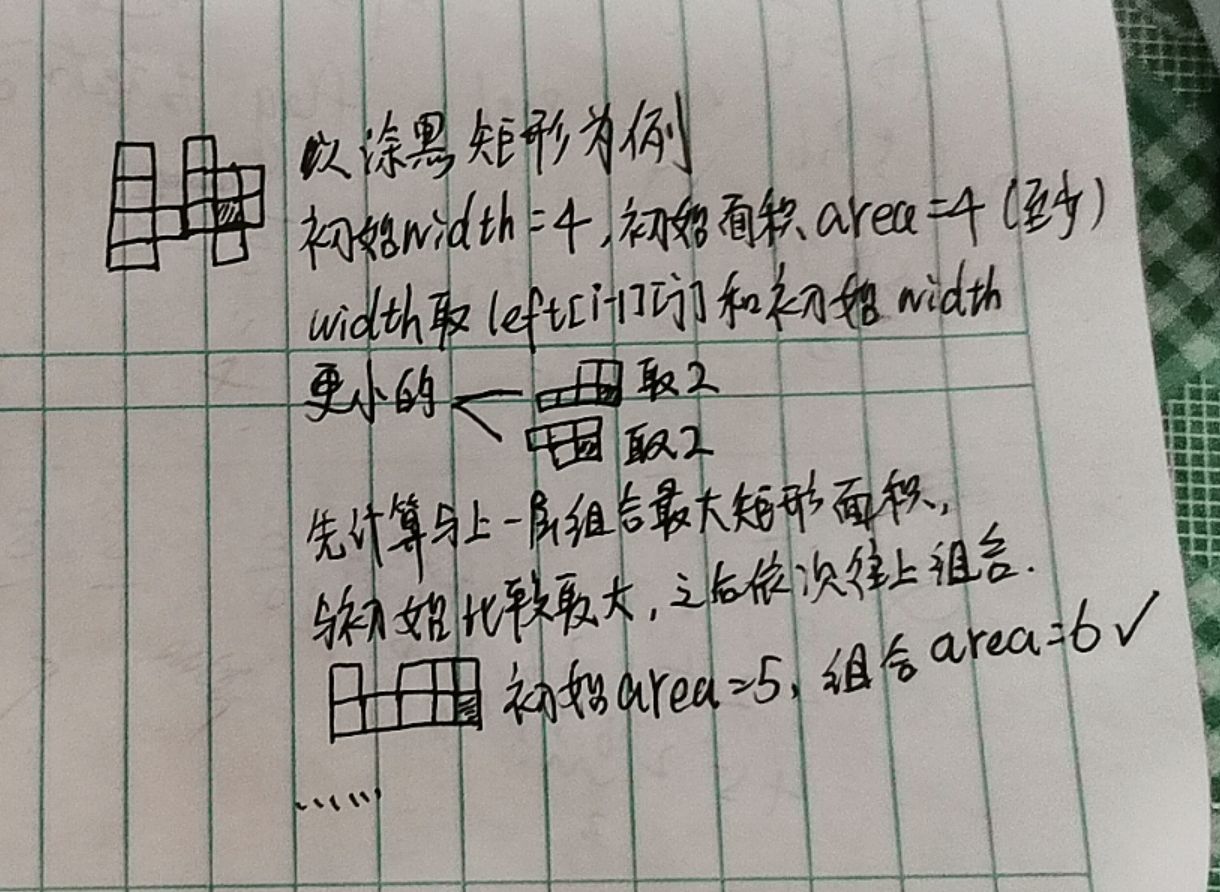 以涂黑矩形为例
初始width=4,初始面积area=4(至少)
width取left[i-1][j]和初始width
更小的
取2
取2
先计算与上一层组合最大矩形面积,
与初始比较取大,之后依次往上组合.
初始area=5,组合area=6✓
......